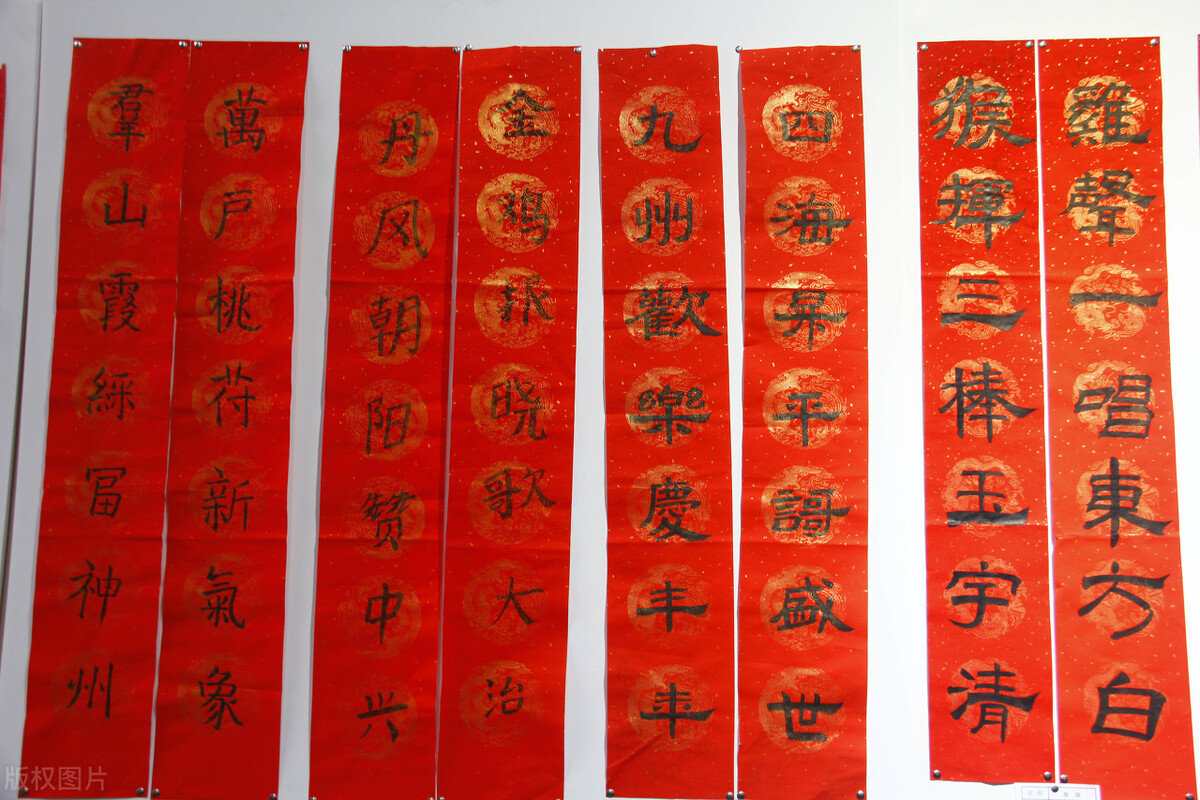 雞聲一唱東方白
猴揮三棒玉宇清
四海昇平謌盛世
九州歡樂慶丰年
金鸡报晓歌大治
丹风朝阳赞中兴
萬户桃苻新氣象
羣山霞綵冨神州
版权图片